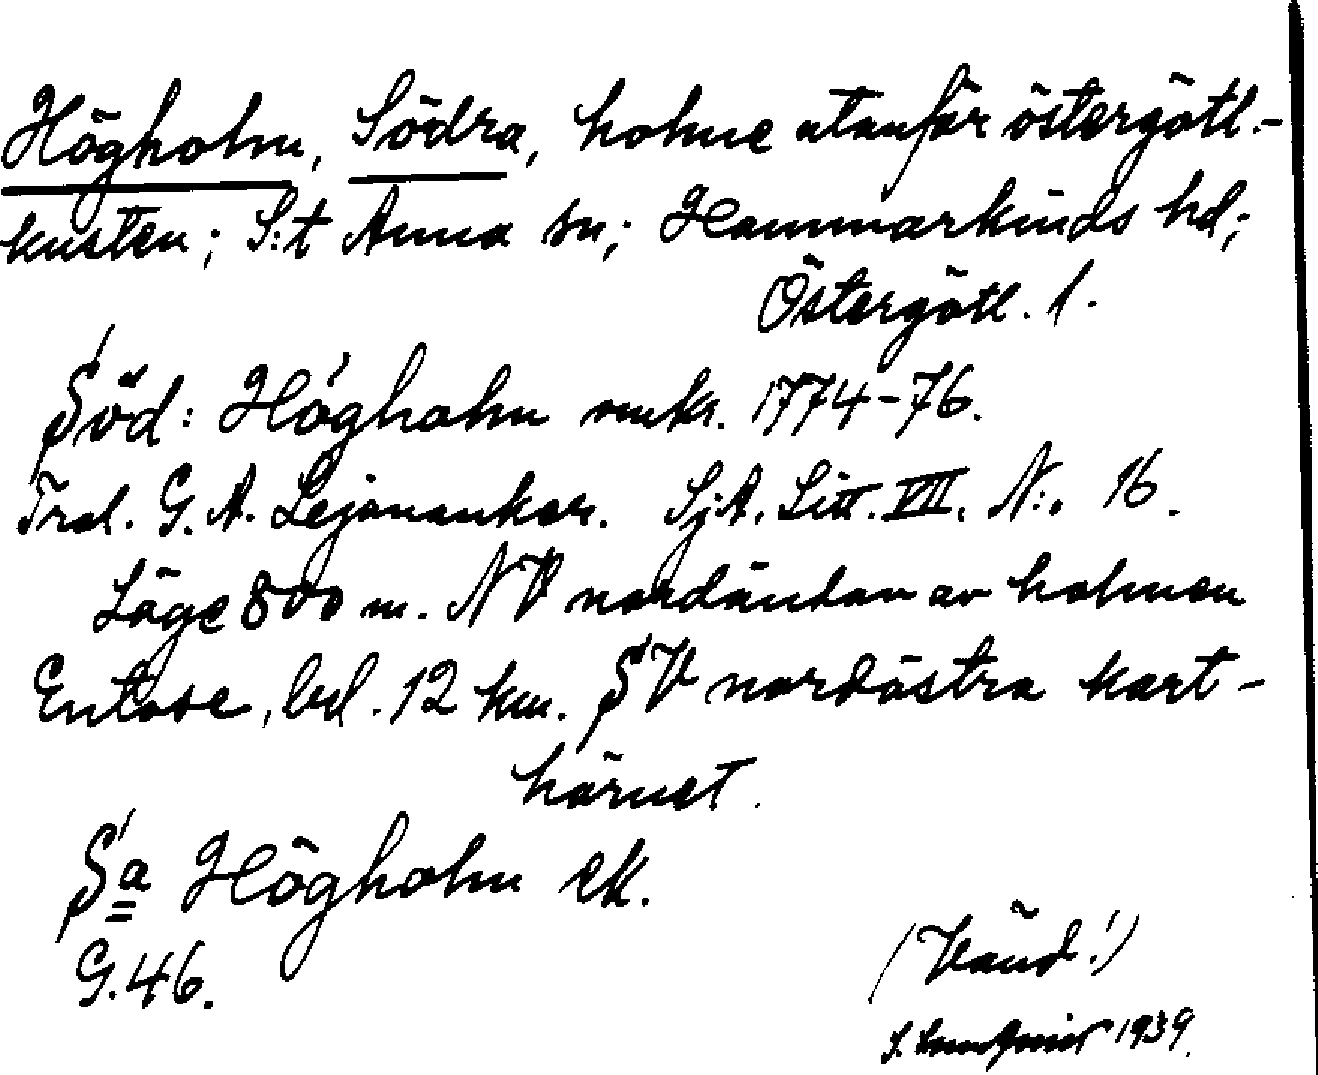 Högholm, Södra, holme utanför östergötl.-
kusten; S:t Anna sn; Hammarkinds hd;
Östergötl. l.
Söd: Högholm smkr. 1774-76.
Tral. G. A. Lejonankar. SjA. Litt. VII. N:o 16.
Läge 800 m. NV nordändan av holmen
Entose, bel. 12 km. SV nordöstra kart-
hörnet.
Sa Högholm ek.
G. 46.
(Vänd!)
S. 1939.